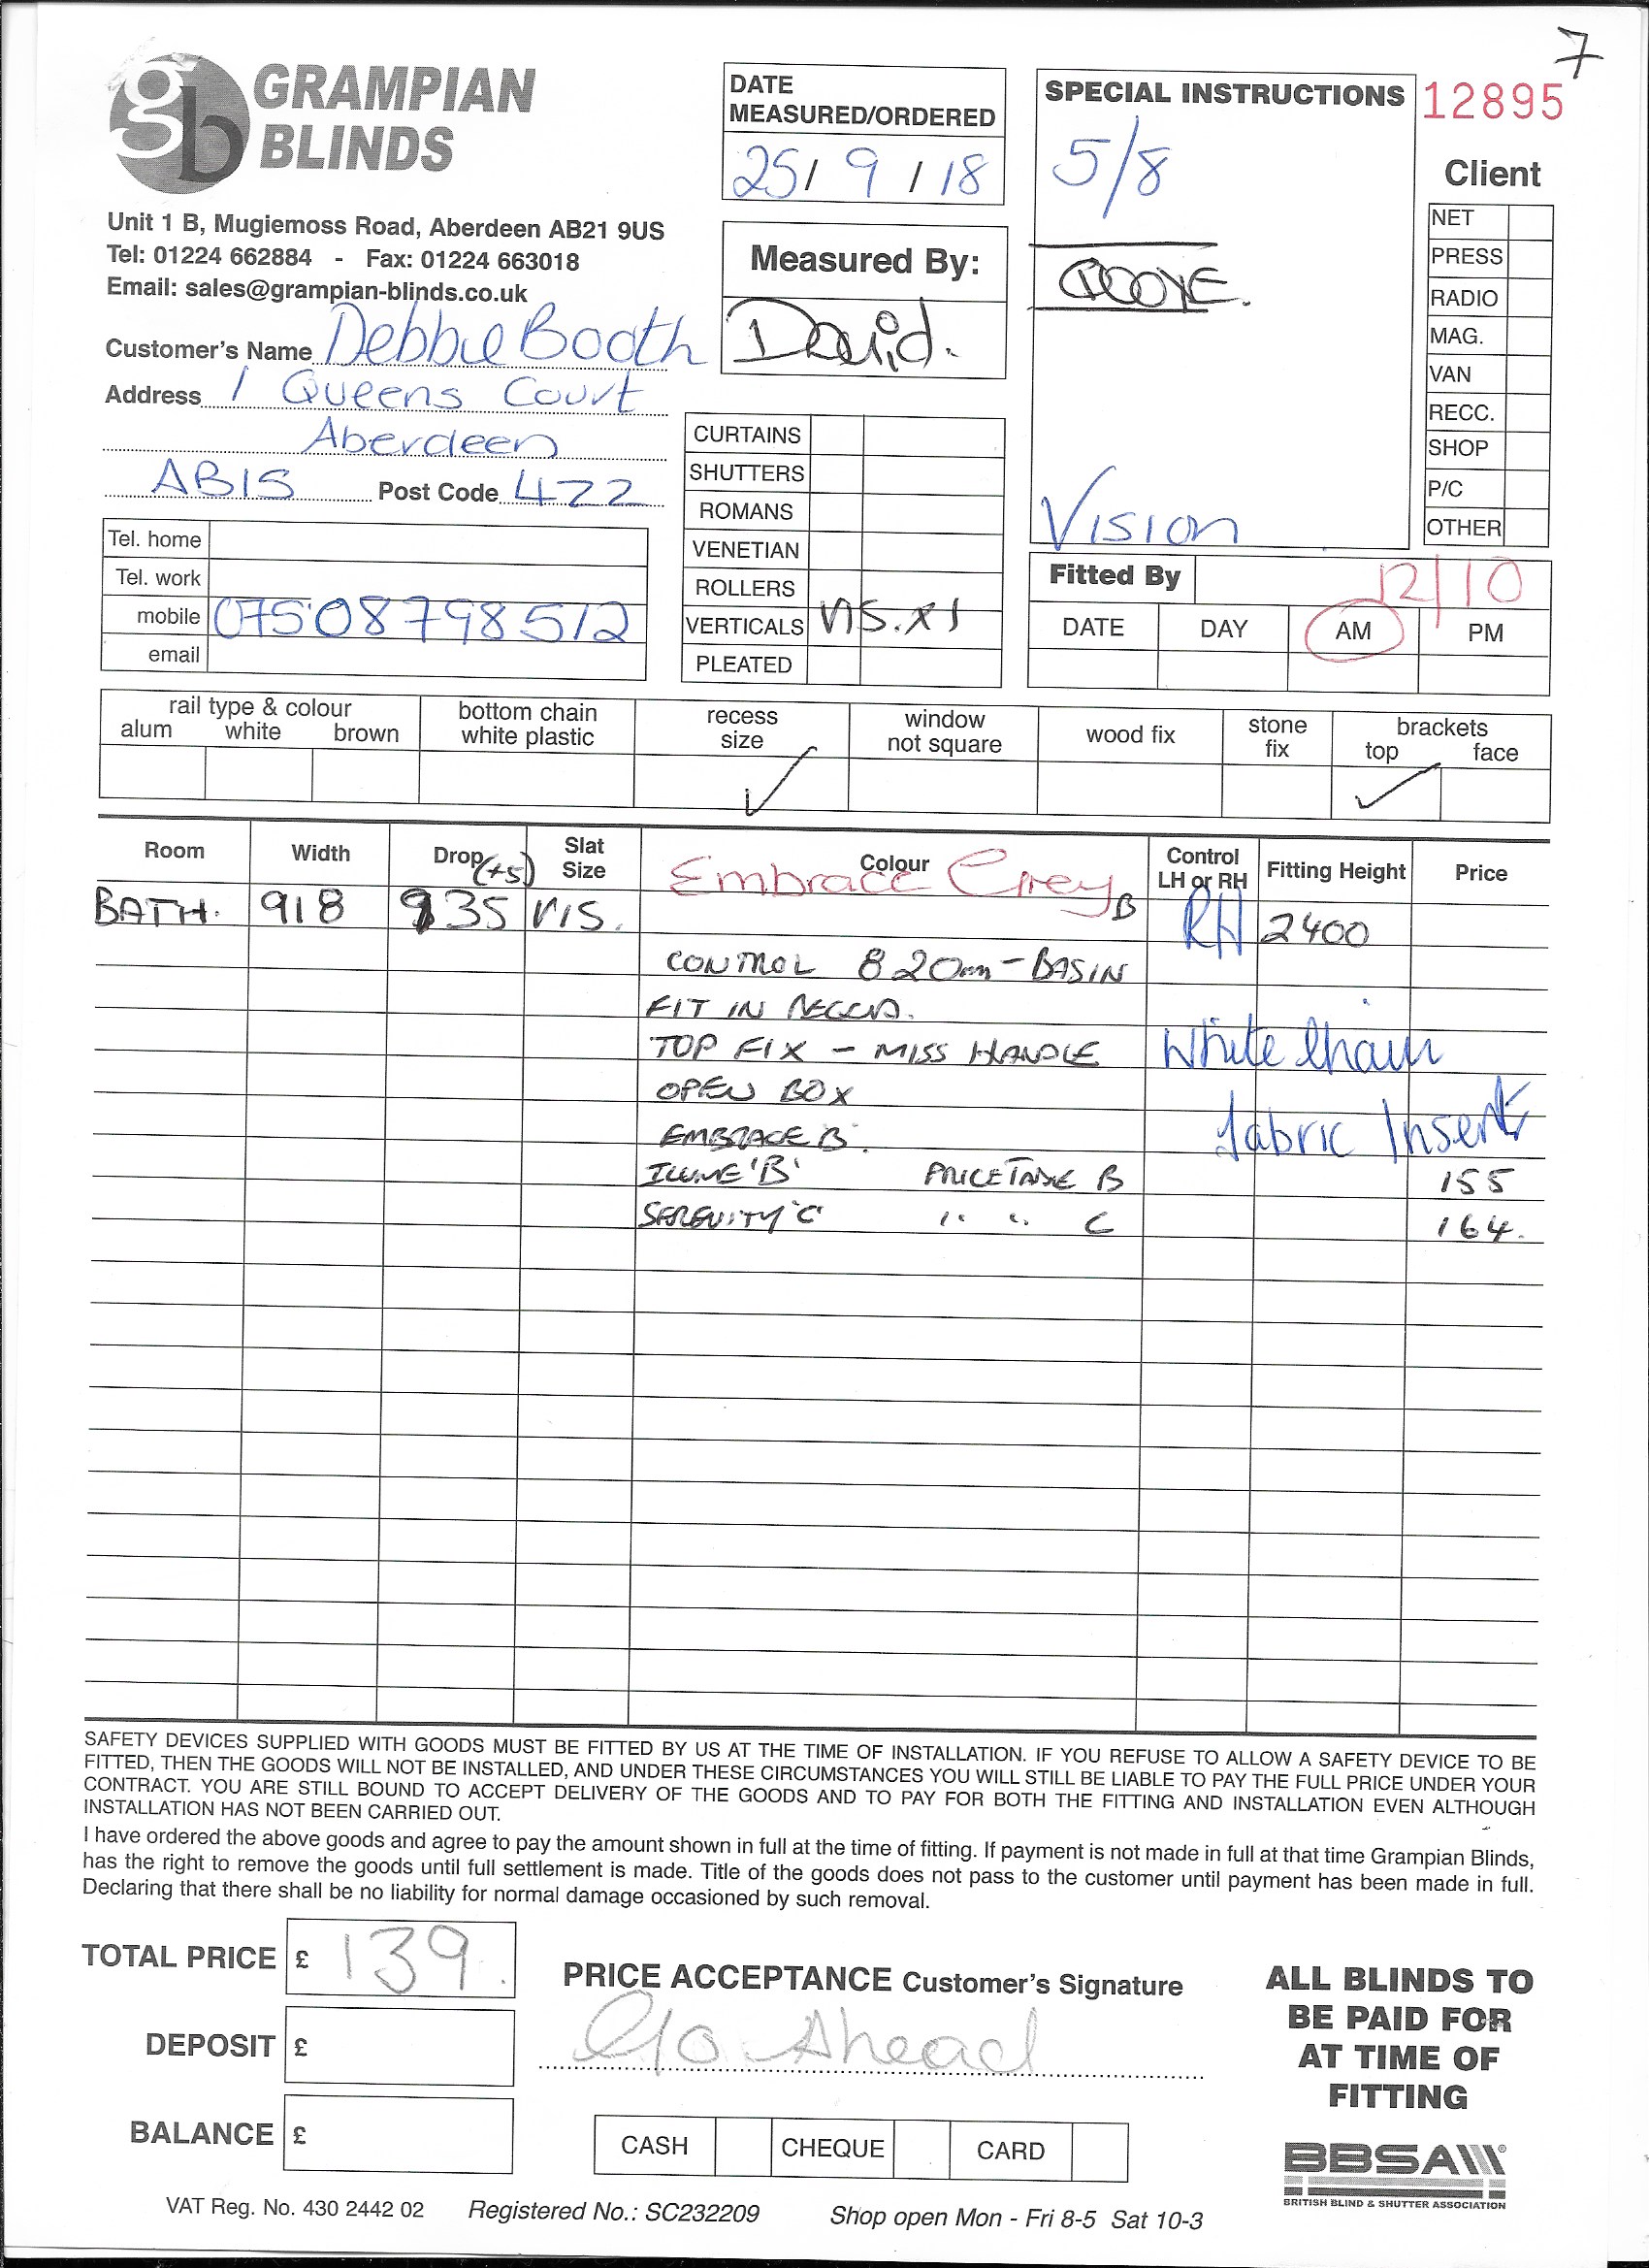 7
GRAMPIAN
BLINDS
Unit 1 B, Mugiemoss Road, Aberdeen AB21 9US
Tel: 01224 662884 - Fax: 01224 663018
Email: sales@grampian-blinds.co.uk
Customer's Name Debbie Booth
Address 1 Queens Court
Aberdeen
AB15 Post Code 4ZZ
Tel. home
Tel. work
mobile 07508798512
email
DATE
MEASURED/ORDERED
25/ 9 / 18
Measured By:
David.
CURTAINS
SHUTTERS
ROMANS
VENETIAN
ROLLERS
VERTICALS VIS. X1
PLEATED
SPECIAL INSTRUCTIONS
5/8
Vision
12895
Client
NET
PRESS
RADIO
MAG.
VAN
RECC.
SHOP
P/C
OTHER
Fitted By 12/10
DATE DAY AM PM
rail type & colour
alum white brown
bottom chain
white plastic
recess
size
window
not square
wood fix
stone
fix
brackets
top face
Room Width Drop (+5) Slat Size Colour Control LH or RH Fitting Height Price
Embrace Grey B
BATH. 918 935 VIS. RH 2400
CONTROL 820mm - BASIN
FIT IN
TOP FIX - MISS HANDLE White Chain
OPEN BOX
EMBRACE B. Fabric Insert
ILLUME 'B' B 155
SERENITY 'C' " " C 164.
SAFETY DEVICES SUPPLIED WITH GOODS MUST BE FITTED BY US AT THE TIME OF INSTALLATION. IF YOU REFUSE TO ALLOW A SAFETY DEVICE TO BE
FITTED, THEN THE GOODS WILL NOT BE INSTALLED, AND UNDER THESE CIRCUMSTANCES YOU WILL STILL BE LIABLE TO PAY THE FULL PRICE UNDER YOUR
CONTRACT. YOU ARE STILL BOUND TO ACCEPT DELIVERY OF THE GOODS AND TO PAY FOR BOTH THE FITTING AND INSTALLATION EVEN ALTHOUGH
INSTALLATION HAS NOT BEEN CARRIED OUT.
I have ordered the above goods and agree to pay the amount shown in full at the time of fitting. If payment is not made in full at that time Grampian Blinds,
has the right to remove the goods until full settlement is made. Title of the goods does not pass to the customer until payment has been made in full.
Declaring that there shall be no liability for normal damage occasioned by such removal.
TOTAL PRICE £ 139.
DEPOSIT £
BALANCE £
PRICE ACCEPTANCE Customer's Signature
Go Ahead
CASH CHEQUE CARD
ALL BLINDS TO
BE PAID FOR
AT TIME OF
FITTING
BBSA
BRITISH BLIND & SHUTTER ASSOCIATION
VAT Reg. No. 430 2442 02 Registered No.: SC232209 Shop open Mon - Fri 8-5 Sat 10-3